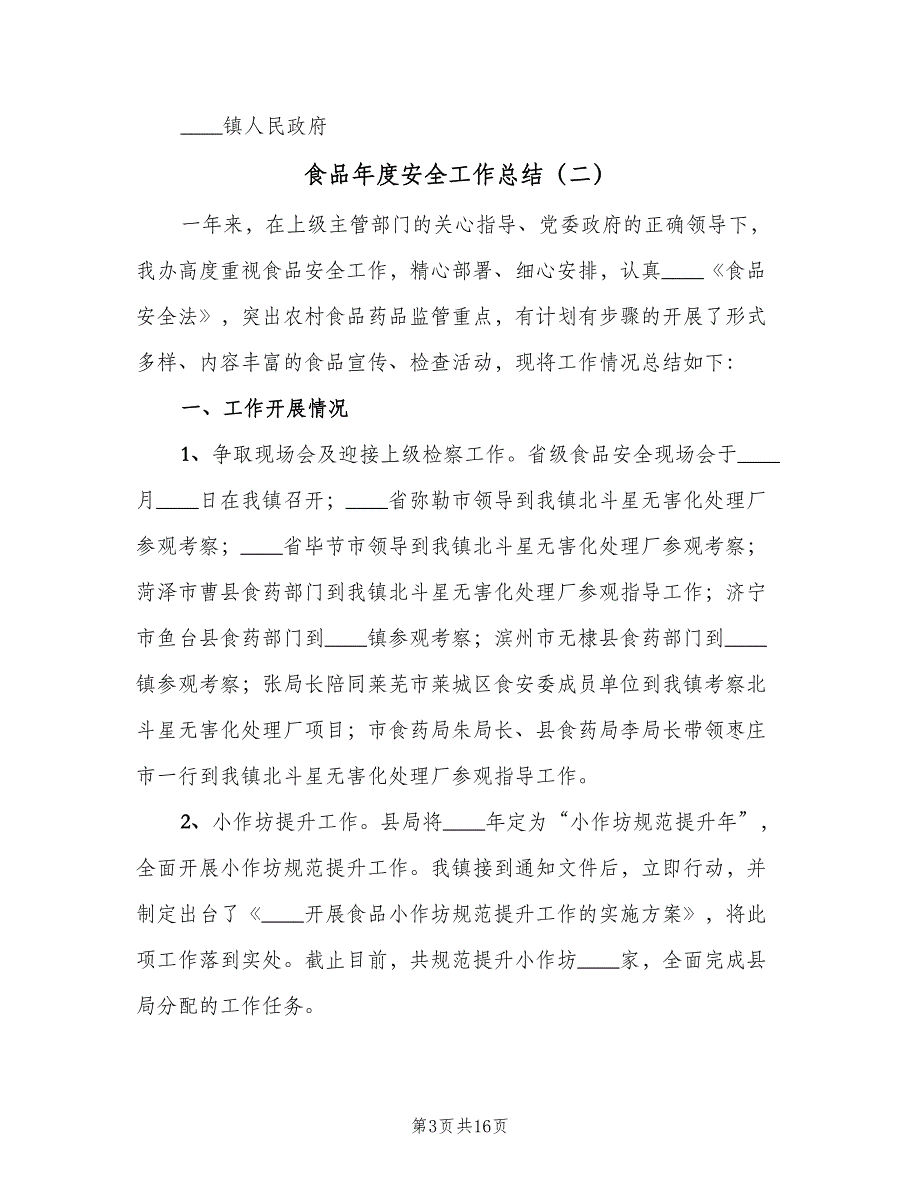 ____镇人民政府
食品年度安全工作总结（二）
一年来，在上级主管部门的关心指导、党委政府的正确领导下，
我办高度重视食品安全工作，精心部署、细心安排，认真____《食品
安全法》，突出农村食品药品监管重点，有计划有步骤的开展了形式
多样、内容丰富的食品宣传、检查活动，现将工作情况总结如下：
一、工作开展情况
1、争取现场会及迎接上级检察工作。省级食品安全现场会于____
月____日在我镇召开；____省弥勒市领导到我镇北斗星无害化处理厂
参观考察；____省毕节市领导到我镇北斗星无害化处理厂参观考察；
菏泽市曹县食药部门到我镇北斗星无害化处理厂参观指导工作；济宁
市鱼台县食药部门到____镇参观考察；滨州市无棣县食药部门到____
镇参观考察；张局长陪同莱芜市莱城区食安委成员单位到我镇考察北
斗星无害化处理厂项目；市食药局朱局长、县食药局李局长带领枣庄
市一行到我镇北斗星无害化处理厂参观指导工作。
2、小作坊提升工作。县局将____年定为“小作坊规范提升年”，
全面开展小作坊规范提升工作。我镇接到通知文件后，立即行动，并
制定出台了《____开展食品小作坊规范提升工作的实施方案》，将此
项工作落到实处。截止目前，共规范提升小作坊____家，全面完成县
局分配的工作任务。
第3页共16页